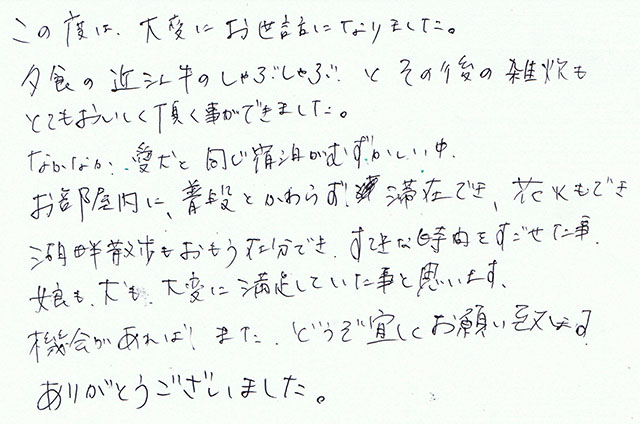 この度は、大変にお世話になりました。
夕食の近江牛のしゃぶしゃぶとその後の雑炊も
とてもおいしく頂く事ができました。
なかなか、愛犬と同じ宿泊がむずかしい中、
お部屋内に、普段とかわらず滞在でき、花火もでき
湖畔散歩もおもう存分でき、すてきな時間をすごせた事、
娘も、犬も、大変に満足していた事と思います、
機会があれば、また、どうぞ宜しくお願い致します
ありがとうございました。